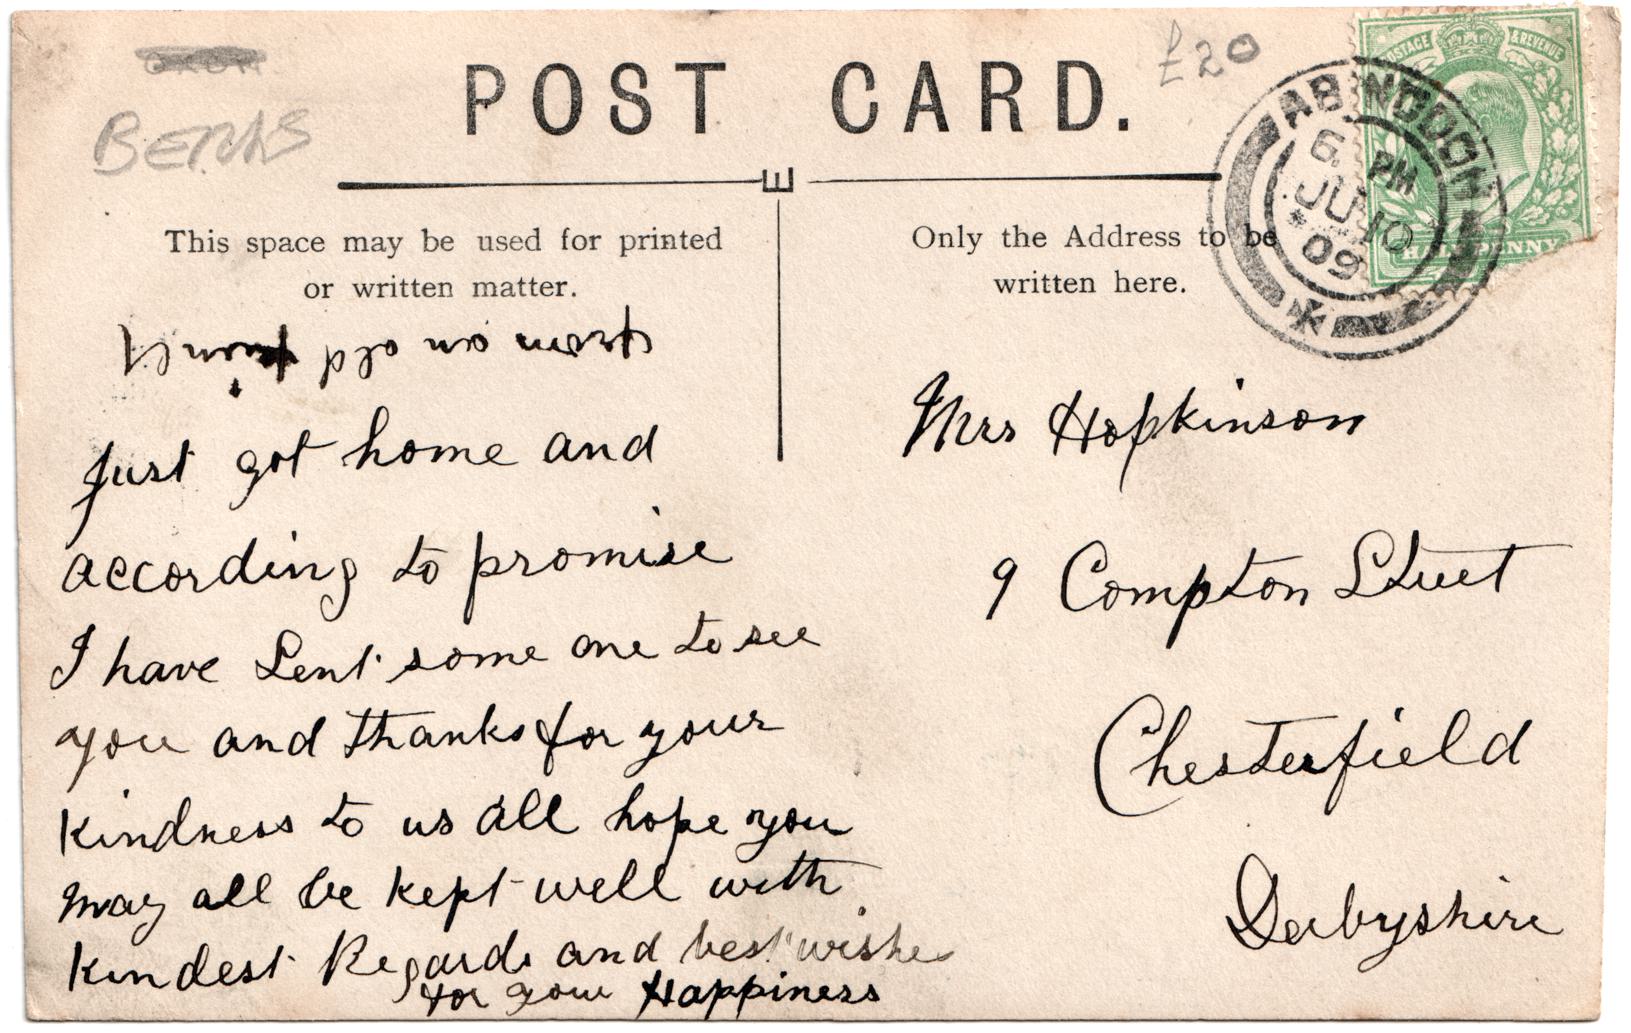 BERKS
POST CARD.
£20
POSTAGE & REVENUE
HALFPENNY
ABINGDON
6. PM
JU 10
09
E
This space may be used for printed
or written matter.
Only the Address to be
written here.
from an old friend
Just got home and
according to promise
I have Sent some one to see
you and thanks for your
kindness to us all hope you
may all be kept well with
kindest Regards and best wishes
for your Happiness
Mrs Hopkinson
9 Compton Street
Chesterfield
Derbyshire